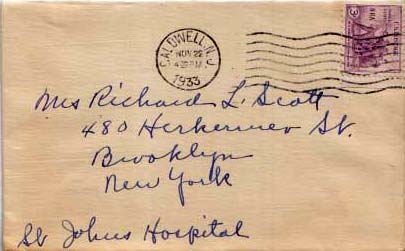 CALDWELL, N.J.
NOV 22
1933
3
Mrs Richard L. Scott
480 Herkermer St.
Brooklyn
New York
St Johns Hospital